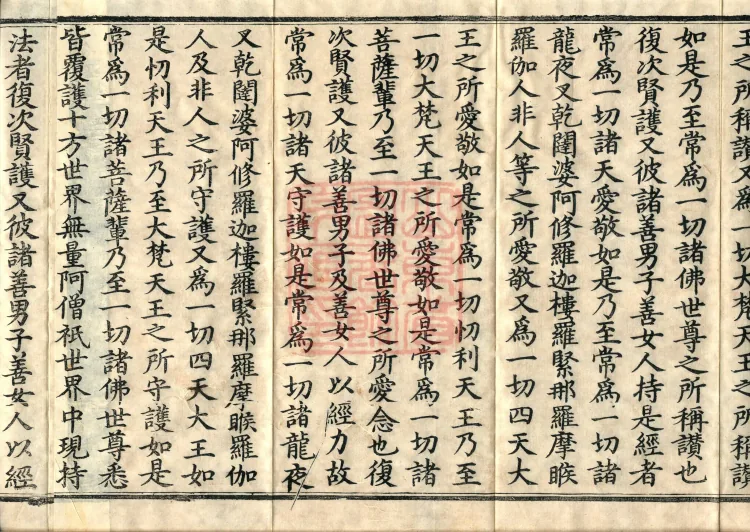 王之所稱讚又爲一切大梵天王之所稱讚
如是乃至常爲一切諸佛世尊之所稱讚也
復次賢護又彼諸善男子善女人持是經者
常爲一切諸天愛敬如是乃至常爲一切諸
龍夜叉乾闥婆阿修羅迦樓羅緊那羅摩睺
羅伽人非人等之所愛敬又爲一切四天大
王之所愛敬如是常爲一切忉利天王乃至
一切大梵天王之所愛敬如是常爲一切諸
菩薩輩乃至一切諸佛世尊之所愛念也復
次賢護又彼諸善男子及善女人以經力故
常爲一切諸天守護如是常爲一切諸龍夜
叉乾闥婆阿修羅迦樓羅緊那羅摩睺羅伽
人及非人之所守護又爲一切四天大王如
是忉利天王乃至大梵天王之所守護如是
常爲一切諸菩薩輩乃至一切諸佛世尊悉
皆覆護十方世界無量阿僧祇世界中現持
法者復次賢護又彼諸善男子善女人以經